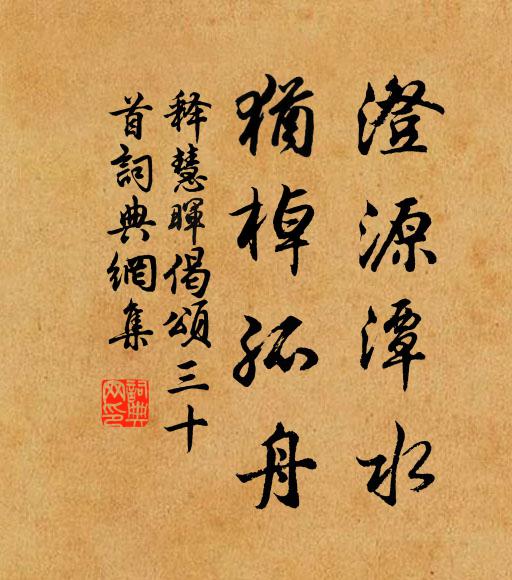 澄源潭水
猶棹孤舟
释慧暉偈頌三十
首詞典網集
詞典网印